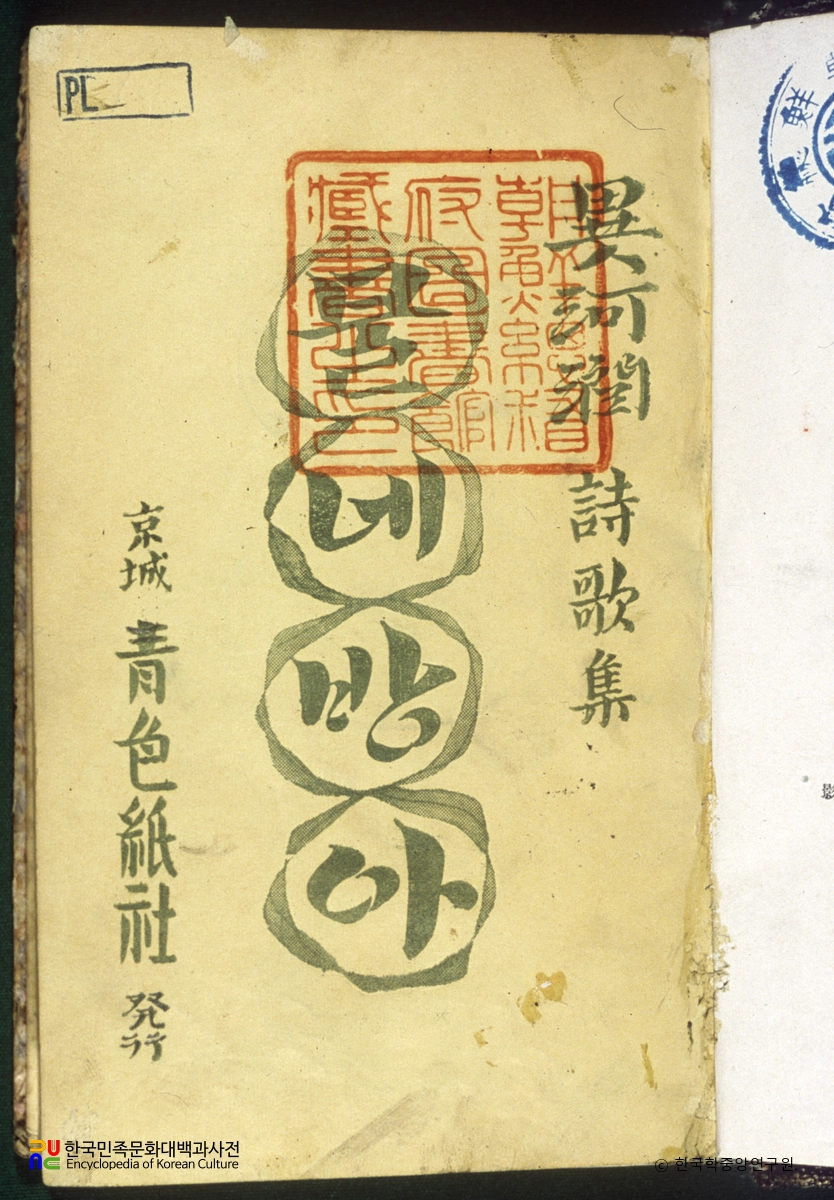 PL
異河潤 詩歌集
朝鮮總督
府圖書館
藏書之印
물네방아
京城 青色紙社 発行
한국민족문화대백과사전
Encyclopedia of Korean Culture
© 한국학중앙연구원